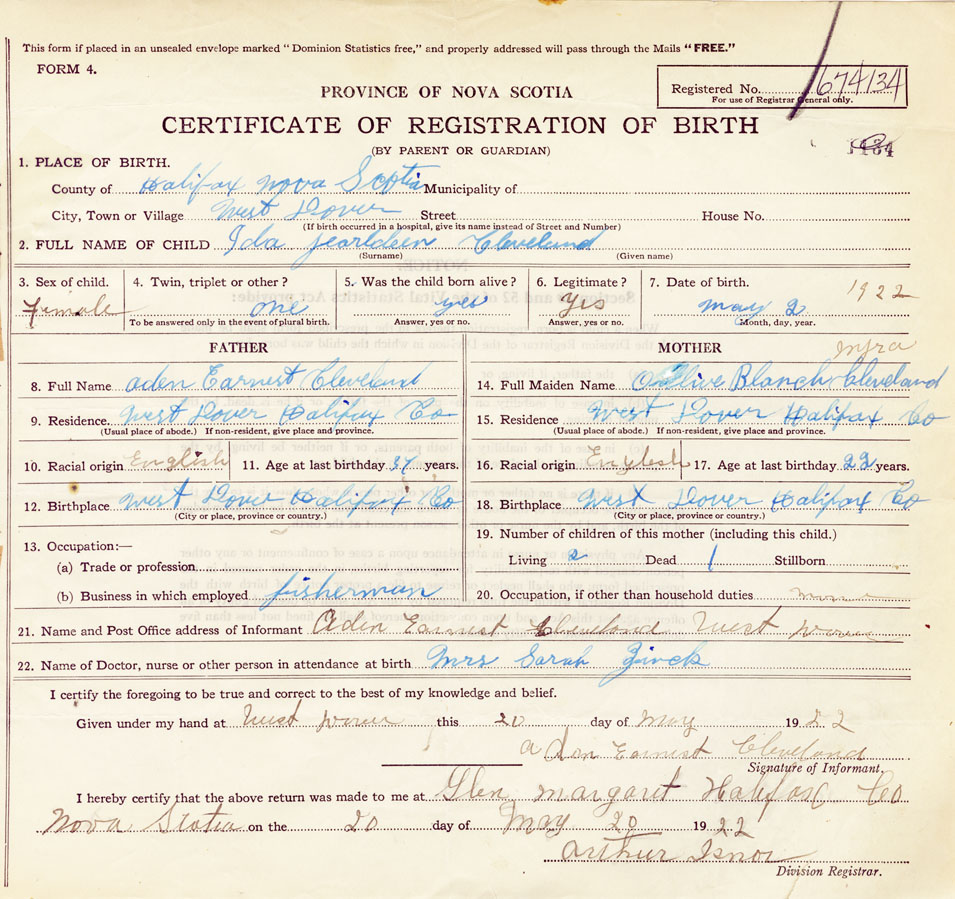 This form if placed in an unsealed envelope marked "Dominion Statistics free," and properly addressed will pass through the Mails "FREE."
FORM 4.
Registered No. 674134
For use of Registrar General only.
PROVINCE OF NOVA SCOTIA
CERTIFICATE OF REGISTRATION OF BIRTH
(BY PARENT OR GUARDIAN)
1. PLACE OF BIRTH.
County of Halifax Nova Scotia Municipality of
City, Town or Village West Dover Street House No.
(If birth occurred in a hospital, give its name instead of Street and Number)
2. FULL NAME OF CHILD Ida Jearldeen Cleveland
(Surname) (Given name)
3. Sex of child. 4. Twin, triplet or other? 5. Was the child born alive? 6. Legitimate? 7. Date of birth.
Female one yes yes May 2 1922
To be answered only in the event of plural birth. Answer, yes or no. Answer, yes or no. Month, day, year.
FATHER MOTHER
8. Full Name Aden Earnest Cleveland 14. Full Maiden Name Olive Blanch Cleveland
9. Residence West Dover Halifax Co 15. Residence West Dover Halifax Co
(Usual place of abode.) If non-resident, give place and province. (Usual place of abode.) If non-resident, give place and province.
10. Racial origin English 11. Age at last birthday 37 years. 16. Racial origin English 17. Age at last birthday 22 years.
12. Birthplace West Dover Halifax Co 18. Birthplace West Dover Halifax Co
(City or place, province or country.) (City or place, province or country.)
13. Occupation:— 19. Number of children of this mother (including this child.)
(a) Trade or profession Living 2 Dead 1 Stillborn
(b) Business in which employed fisherman 20. Occupation, if other than household duties none
21. Name and Post Office address of Informant Aden Earnest Cleveland West Dover
22. Name of Doctor, nurse or other person in attendance at birth Mrs Sarah Zinck
I certify the foregoing to be true and correct to the best of my knowledge and belief.
Given under my hand at West Dover this 20 day of May 1922
Aden Earnest Cleveland
Signature of Informant.
I hereby certify that the above return was made to me at Glen Margaret Halifax Co
Nova Scotia on the 20 day of May 20 1922
Arthur Isnor
Division Registrar.